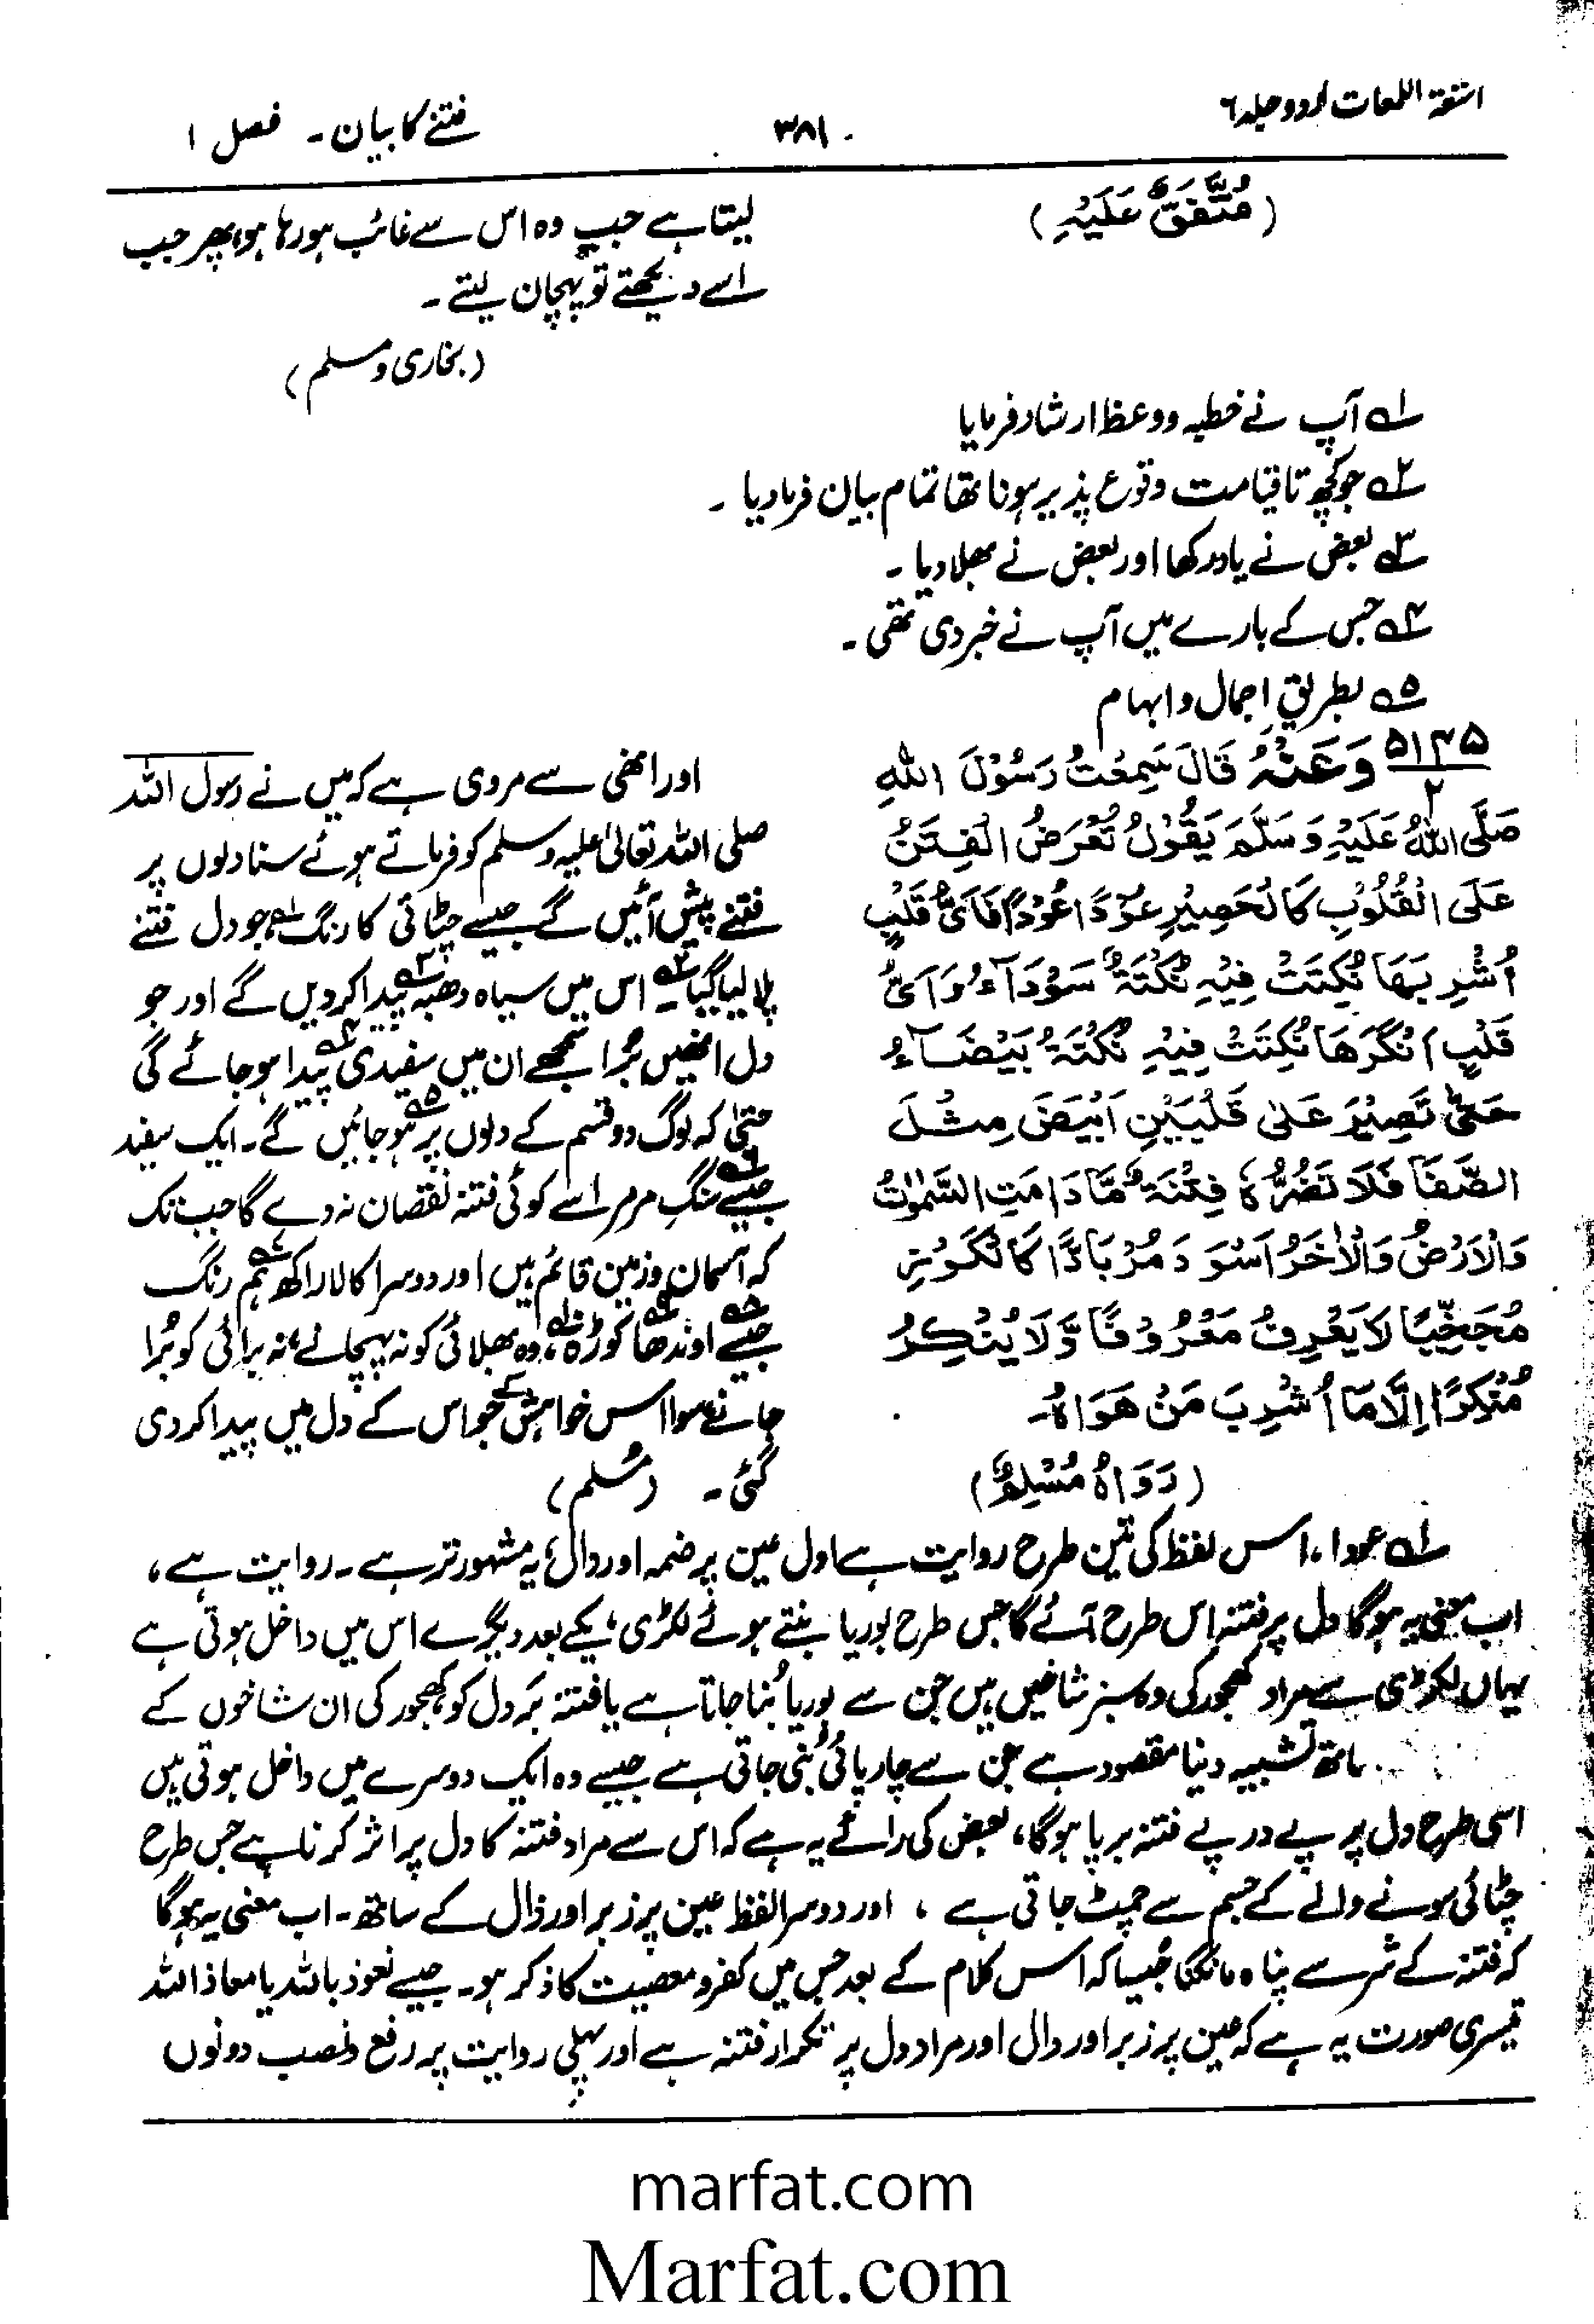 اشعۃ اللمعات اردو جلد ۶
۳۸۱
فتنے کا بیان ۔ فصل ۱
(مُتَّفَقٌ عَلَیْہِ)
لیتا ہے جب وہ اس سے غائب ہو رہا ہو، پھر جب
اسے دیکھتے تو پہچان لیتے ۔
(بخاری و مسلم)
۱ے آپ نے خطبہ و وعظ ارشاد فرمایا
۲ے جو کچھ تا قیامت وقوع پذیر ہونا تھا تمام بیان فرما دیا ۔
۳ے بعض نے یاد رکھا اور بعض نے بھلا دیا ۔
۴ے جس کے بارے میں آپ نے خبر دی تھی ۔
۵ے بطریقِ اجمال و ابہام
۵۱۴۵
۲
وَعَنْہُ قَالَ سَمِعْتُ رَسُوْلَ اللہِ
صَلَّی اللہُ عَلَیْہِ وَسَلَّمَ یَقُوْلُ تُعْرَضُ الْفِتَنُ
عَلَی الْقُلُوْبِ کَالْحَصِیْرِ عُوْدًا عُوْدًا فَاَیُّ قَلْبٍ
اُشْرِبَہَا نُکِتَتْ فِیْہِ نُکْتَۃٌ سَوْدَآءُ وَاَیُّ
قَلْبٍ اَنْکَرَھَا نُکِتَتْ فِیْہِ نُکْتَۃٌ بَیْضَآءُ
حَتّٰی تَصِیْرَ عَلٰی قَلْبَیْنِ اَبْیَضَ مِثْلَ
الصَّفَا فَلَا تَضُرُّہٗ فِتْنَۃٌ مَّا دَامَتِ السَّمٰوٰتُ
وَالْاَرْضُ وَالْاٰخَرُ اَسْوَدَ مُرْبَادًّا کَالْکَوْزِ
مُجَخِّیًا لَا یَعْرِفُ مَعْرُوْفًا وَّلَا یُنْکِرُ
مُنْکِرًا اِلَّا مَا اُشْرِبَ مَنْ ھَوَاہُ۔
(رَوَاہُ مُسْلِمٌ)
اور انھی سے مروی ہے کہ میں نے رسول اللہ
صلی اللہ تعالیٰ علیہ وسلم کو فرماتے ہوئے سنا دلوں پر
فتنے پیش آئیں گے جیسے چٹائی کا رنگ۱ے، جو دل فتنے
پلا لیا گیا۲ے اس میں سیاہ دھبہ۳ے پیدا کر دیں گے اور جو
دل انھیں بُرا سمجھے ان میں سفیدی۴ے پیدا ہو جائے گی
حتیٰ کہ لوگ دو قسم کے دلوں پر۵ے ہو جائیں گے۔ ایک سفید
جیسے۶ے سنگِ مرمر اسے کوئی فتنہ نقصان نہ دے گا جب تک
کہ آسمان و زمین قائم ہیں اور دوسرا کالا راکھ۷ے ہم رنگ
جیسے۸ے اوندھا۹ے کوزہ۱۰ے، وہ بھلائی کو نہ پہچانے، نہ برائی کو بُرا
جانے سوا اس خواہش کے جو اس کے دل میں پیدا کر دی
گئی ۔ (مسلم)
۱ے عودا، اس لفظ کی تین طرح روایت ہے اول عین پر ضمہ اور دال، یہ مشہور تر ہے ۔ روایت ہے،
اب معنی یہ ہوگا دل پر فتنہ اس طرح آئے گا جس طرح بوریا بنتے ہوئے لکڑی، یکے بعد دیگرے اس میں داخل ہوتی ہے
یہاں لکڑی سے مراد کھجور کی وہ سبز شاخیں ہیں جن سے بوریا بُنا جاتا ہے یا فتنہ بَر دل کو کھجور کی ان شاخوں کے
ساتھ تشبیہ دینا مقصود ہے جن سے چارپائی بُنی جاتی ہے جیسے وہ ایک دوسرے میں داخل ہوتی ہیں
اسی طرح دل پر پے در پے فتنہ برپا ہوگا، بعض کی رائے یہ ہے کہ اس سے مراد فتنہ کا دل پر اثر کرنا ہے جس طرح
چٹائی سونے والے کے جسم سے چمٹ جاتی ہے ، اور دوسرا لفظ عین پر زبر اور ذال کے ساتھ ۔ اب معنی یہ ہوگا
کہ فتنہ کے شر سے پناہ مانگنا جیسا کہ اس کلام کے بعد جس میں کفر و معصیت کا ذکر ہو۔ جیسے نعوذ باللہ یا معاذ اللہ
تیسری صورت یہ ہے کہ عین پر زبر اور دال اور مراد دل پر تکرار فتنہ ہے اور پہلی روایت پر رفع و نصب دونوں
marfat.com
Marfat.com